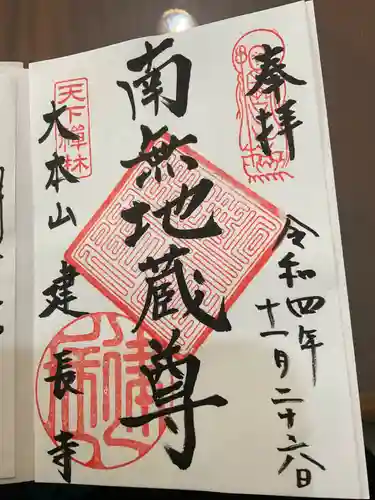 奉拝
令和四年
十一月二十六日
南無地蔵尊
天下禅林
大本山
建長寺